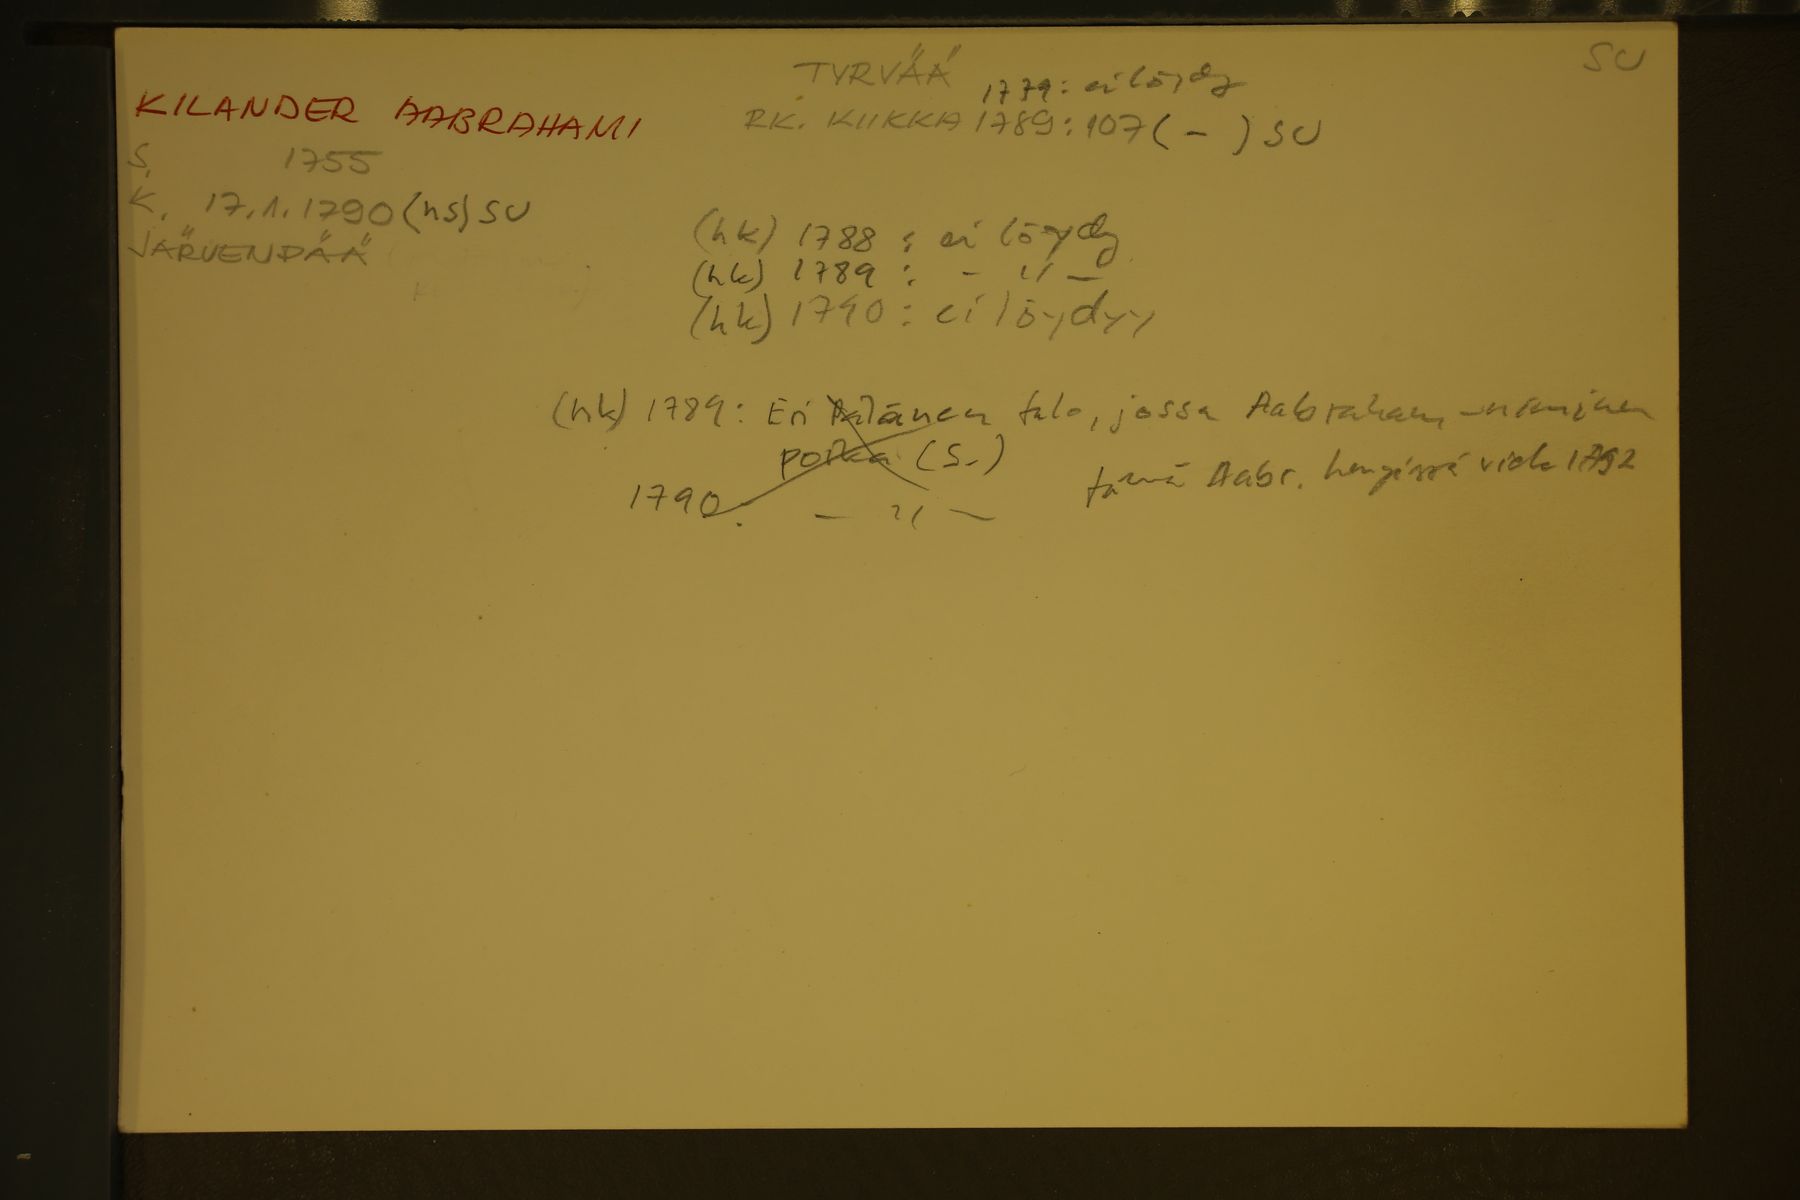 SU
TYRVÄÄ
1779: ei löydy
KILANDER AABRAHAMI
RK. KIIKKA 1789: 107 ( - ) SU
S. 1755
K. 17.1.1790 (hs) SU
JÄRVENPÄÄ
(hk) 1788 : ei löydy
(hk) 1789 : - " -
(hk) 1790 : ei löydyy
(hk) 1789: Eri talo, jossa Aabraham, -niminen
poika (S.)
tämä Aabr. hengissä viele 1792
1790. - " -